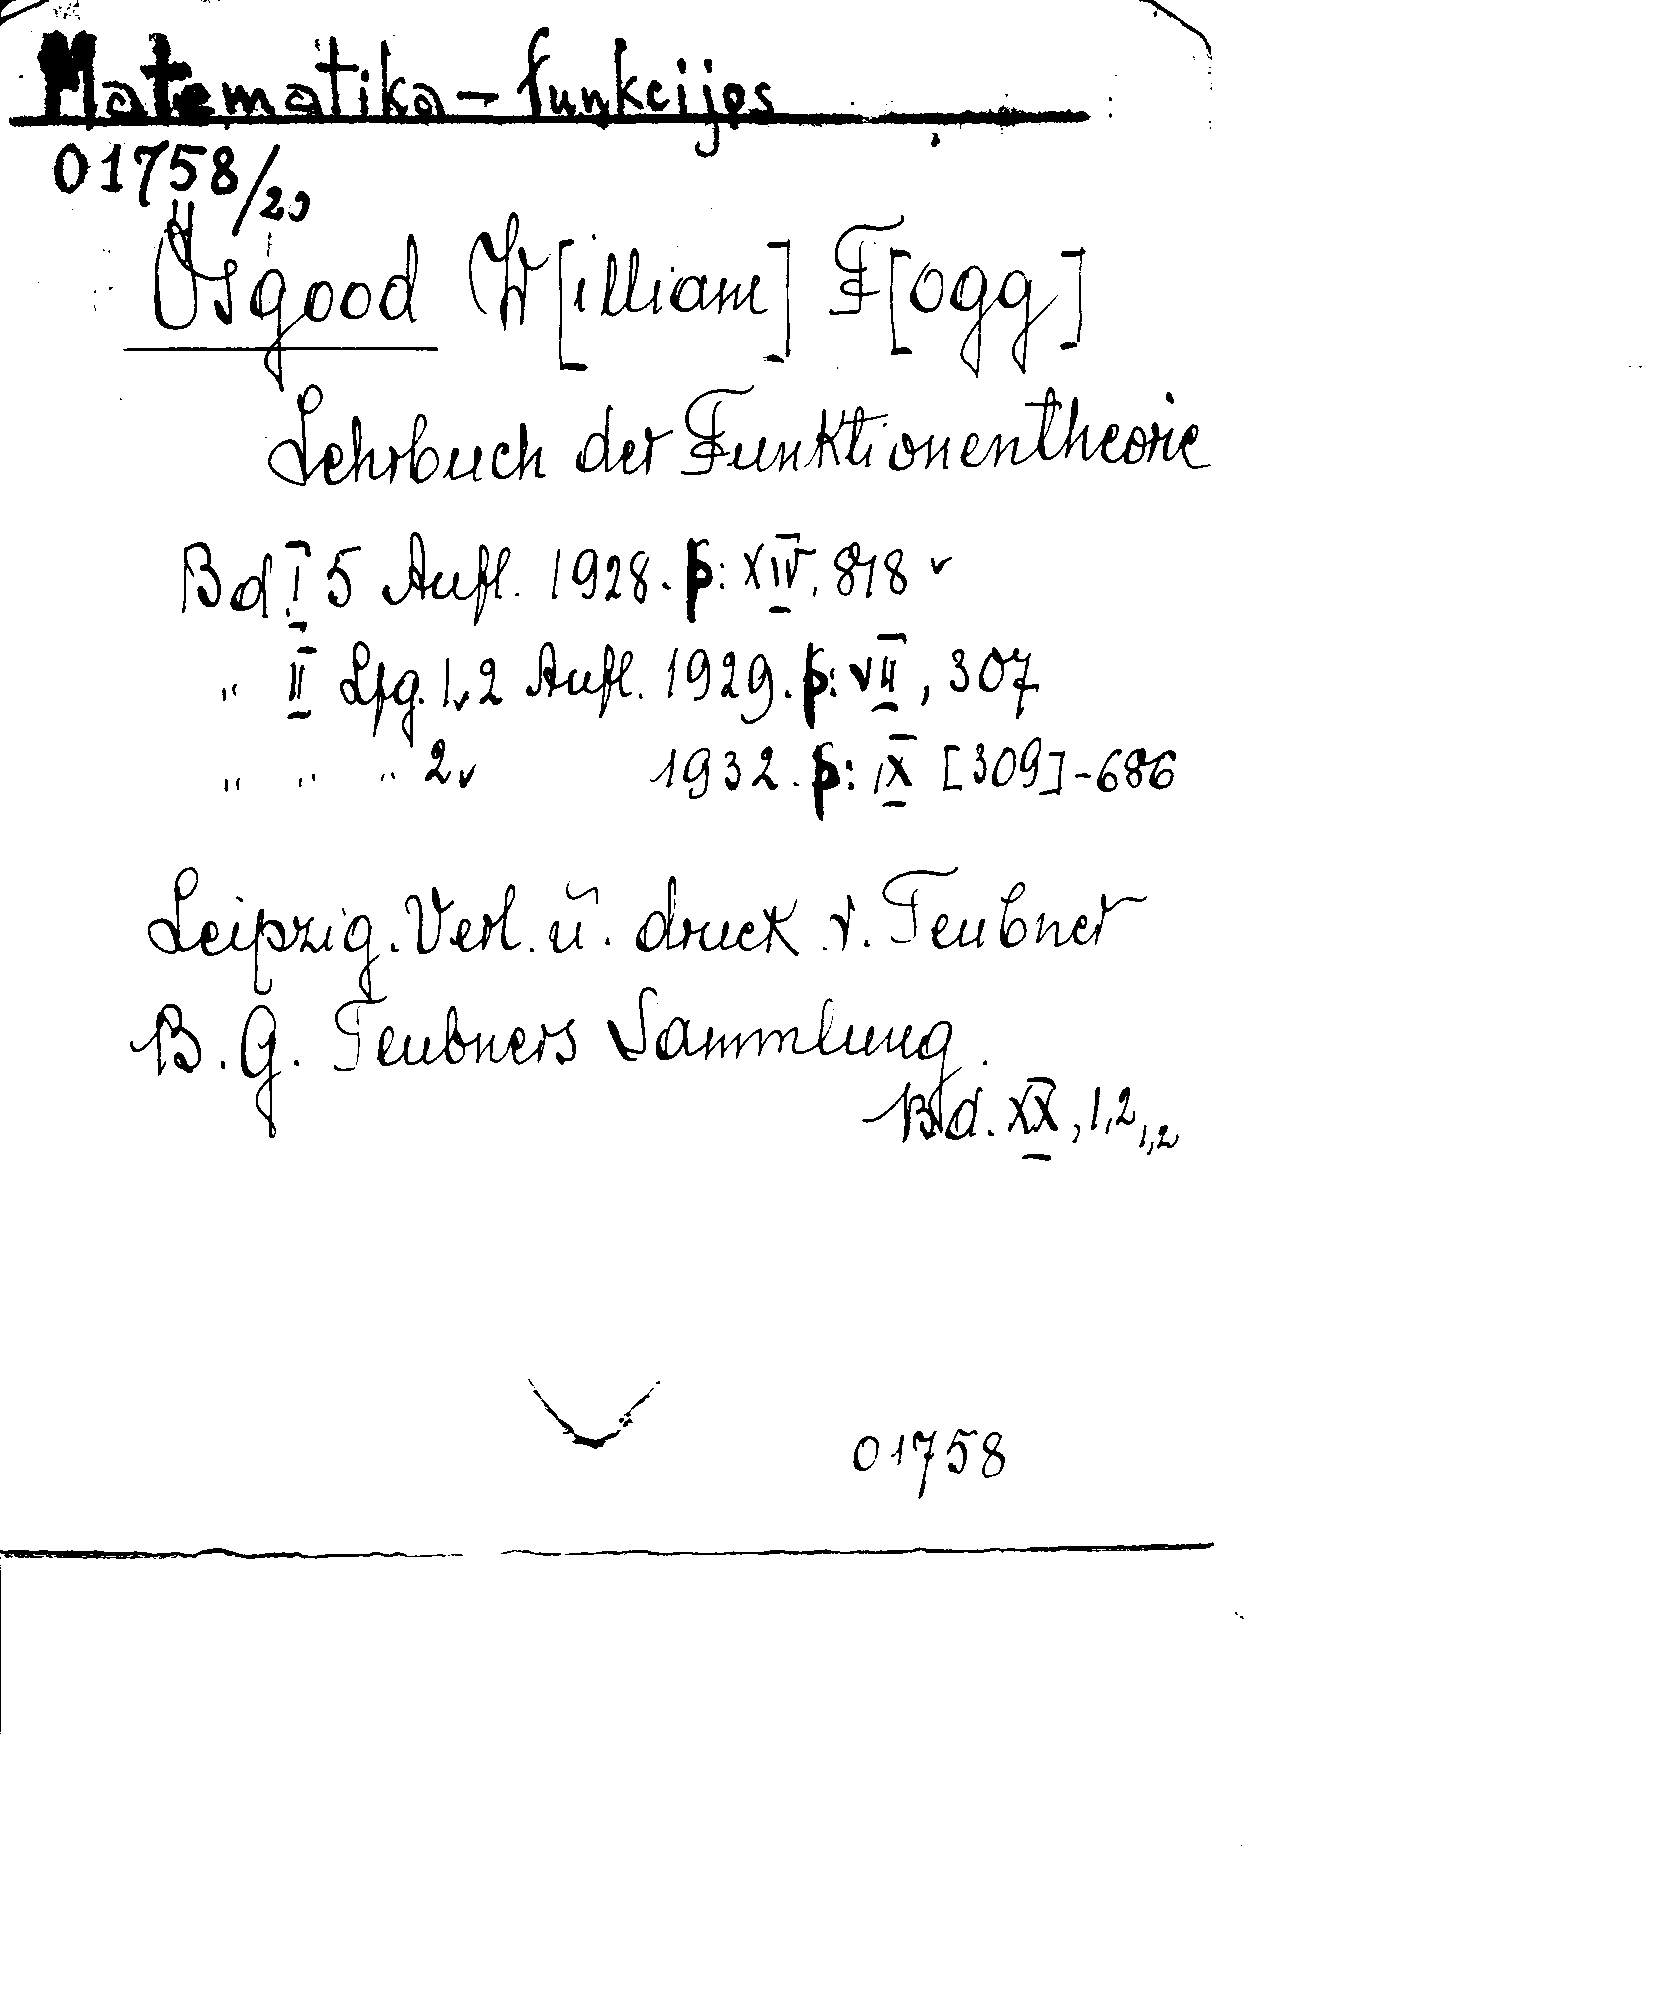 Matematika – funkcijos
01758/20
Osgood W[illiam] F[ogg]
Lehrbuch der Funktionentheorie
Bd I 5 Aufl. 1928. p: XIV, 818 ✓
„ II Lfg. 1, 2 Aufl. 1929. p: VII, 307
„ „ „ 2 ✓ 1932. p: IX [309]-686
Leipzig. Verl. u. druck v. Teubner
B. G. Teubners Sammlung.
Bd. XX, 1,2 1,2
01758